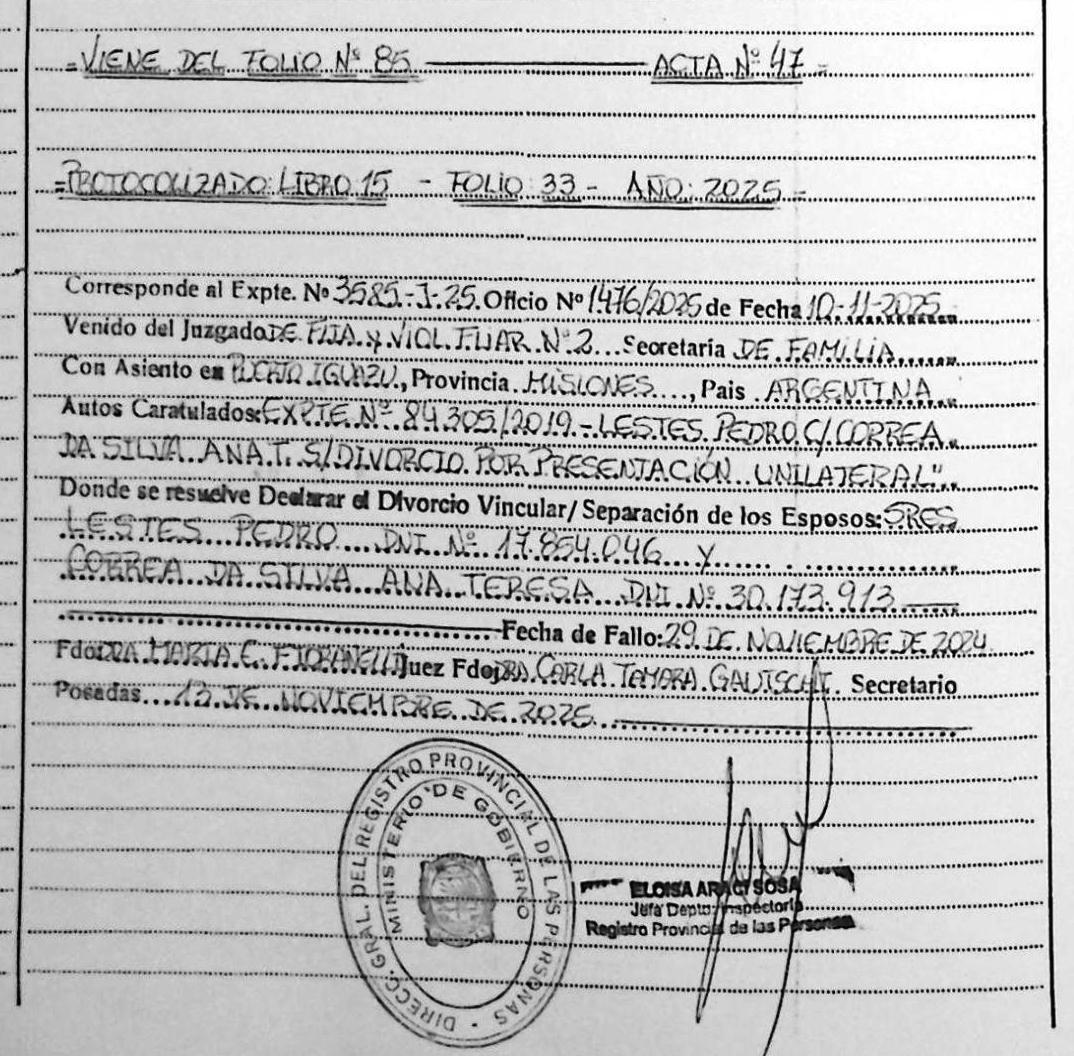 =VIENE DEL FOLIO Nº 85 ——— ACTA Nº 47=
=PROTOCOLIZADO: LIBRO 15 - FOLIO 33 - AÑO: 2025=
Corresponde al Expte. Nº 3585-I-25. Oficio Nº 1476/2025 de Fecha 10-11-2025
Venido del Juzgado DE FLIA. y VIOL. FLIAR. Nº 2... Secretaría DE FAMILIA
Con Asiento en PUERTO IGUAZU, Provincia MISIONES...., Pais ARGENTINA
Autos Caratulados: EXPTE Nº 84305/2019 - LESTES PEDRO C/ CORREA
DA SILVA ANA T. S/DIVORCIO POR PRESENTACIÓN UNILATERAL"
Donde se resuelve Declarar el Divorcio Vincular/ Separación de los Esposos: SRES
LESTES PEDRO DNI Nº 17.854.046 Y
CORREA DA SILVA ANA TERESA DNI Nº 30.173.913
Fecha de Fallo: 29 DE NOVIEMBRE DE 2024
Fdo: DRA MARIA C. Juez Fdo: DRA. CARLA TAMARA GAUTSCHI. Secretario
Posadas... 13 DE NOVIEMBRE DE 2025
DIRECC. GRAL. DEL REGISTRO PROVINCIAL DE LAS PERSONAS
MINISTERIO DE GOBIERNO
ELOISA ARACI SOSA
Jefa Depto. Inspectoría
Registro Provincial de las Personas